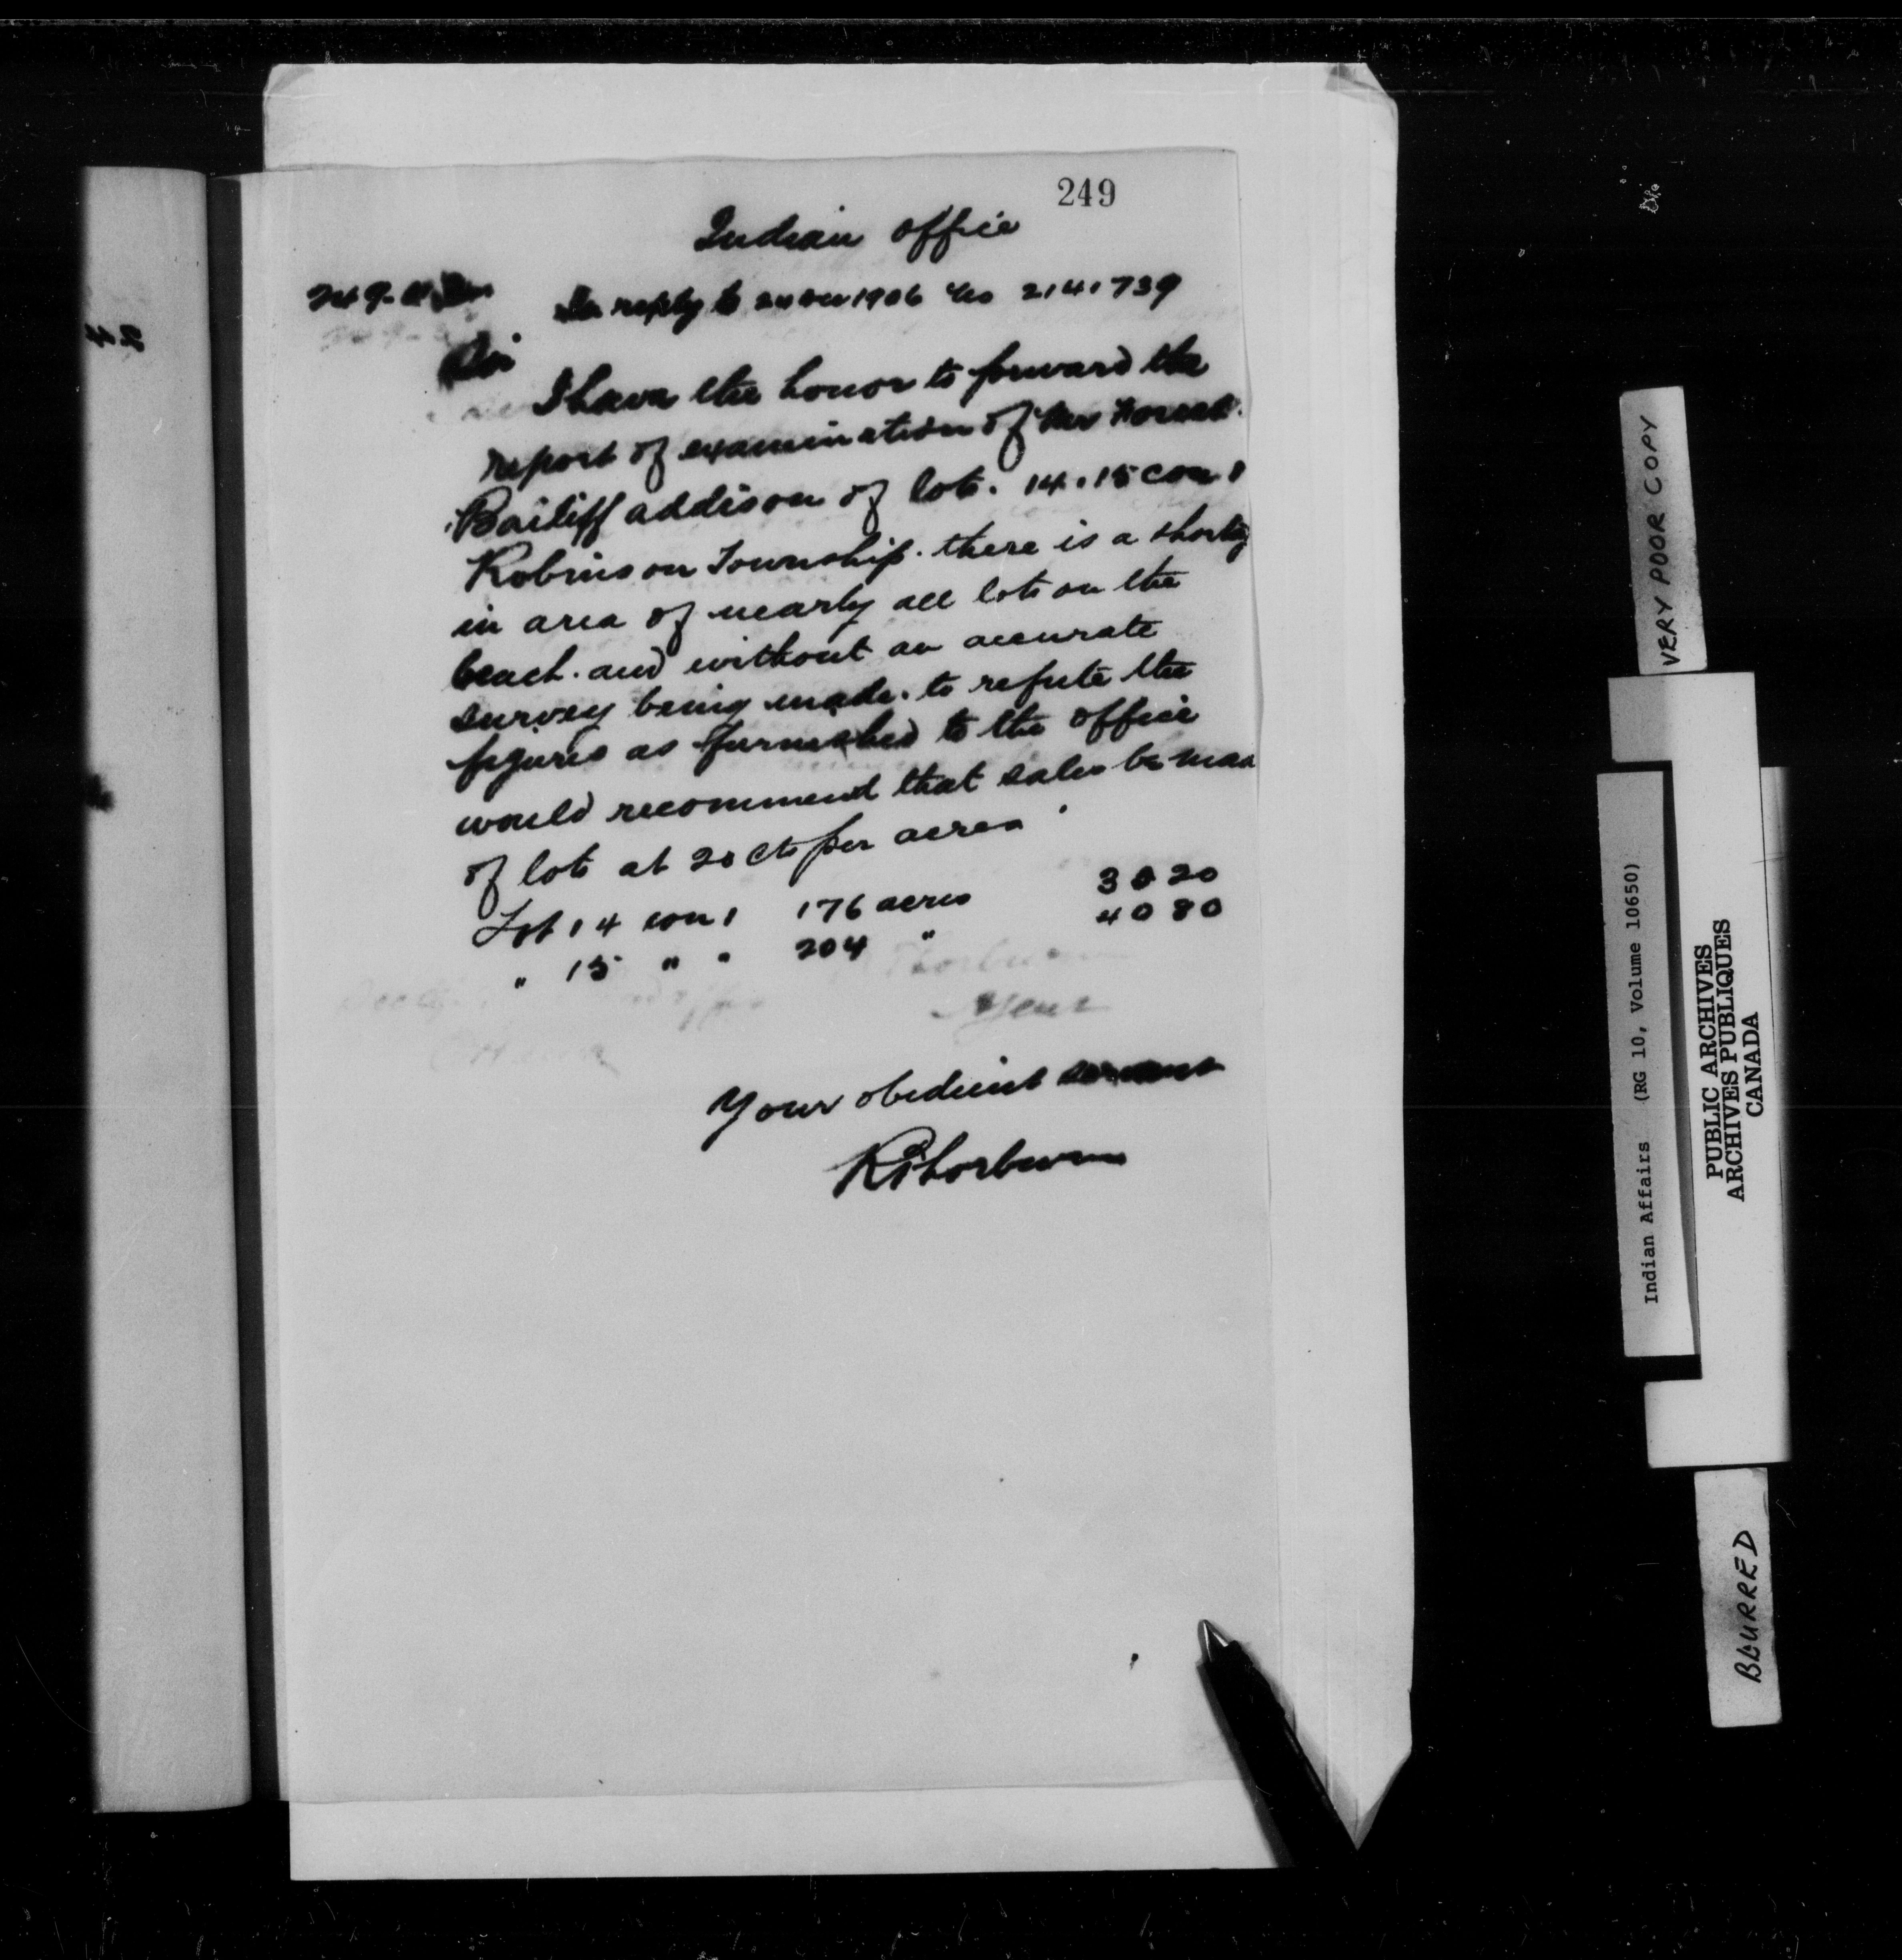 249
Indian office
In reply to 24 Dec 1906 No 2141739
Sir
I have the honor to forward the
report of examination of
Bailiff addison of lots. 14.15 con 1
Robinson Township. there is a shortag
in area of nearly all lots on the
beach. and without an accurate
survey being made. to refute the
figures as furnished to the office
would recommend that sales be mad
of lots at 20 cts per acres
Lot 14 con 1 176 acres
" 15 " " 204 " 40 80
Agent
Your obedient servant
R Thorburn
VERY POOR COPY
Indian Affairs (RG 10, Volume 10650)
PUBLIC ARCHIVES
ARCHIVES PUBLIQUES
CANADA
BLURRED